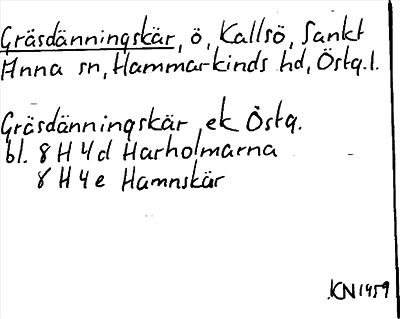 Gräsdänningskär, ö, Kallsö, Sankt
Anna sn, Hammarkinds hd, Östg.l.
Gräsdänningskär, ek Östg.
bl. 8 H 4 d Harholmarna
8 H 4 e Hamnskär
KN 1959